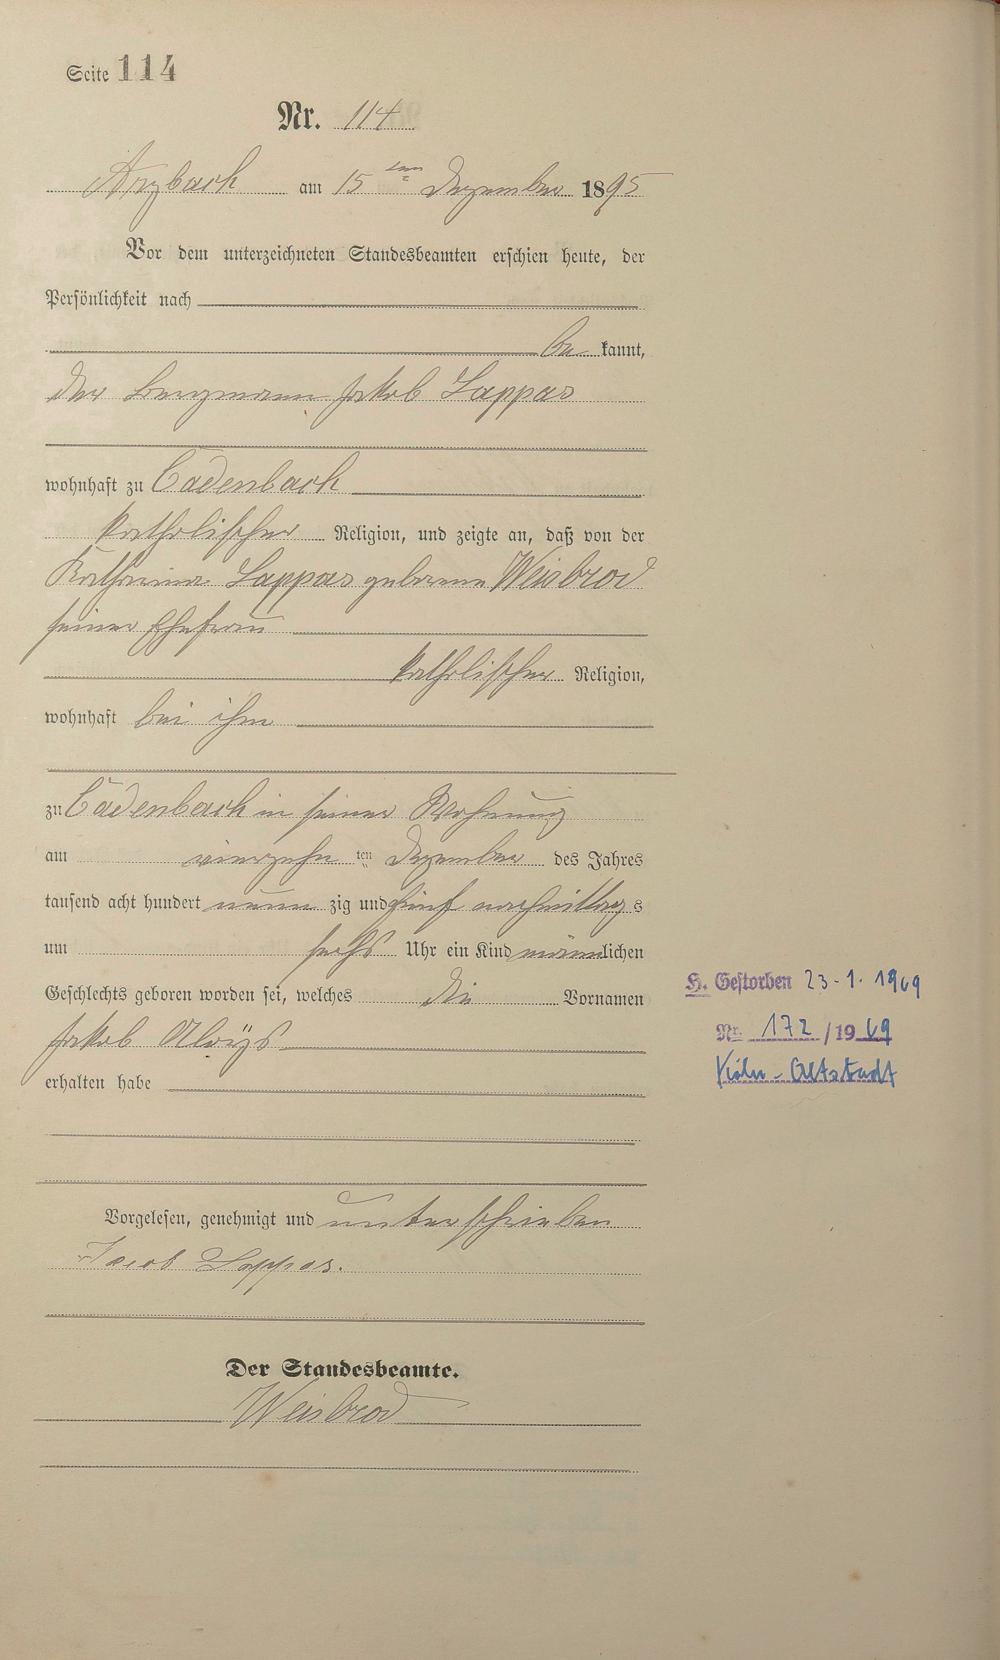 Seite 114
Nr. 114
Arzbach am 15 ten Dezember 1895
Vor dem unterzeichneten Standesbeamten erschien heute, der
Persönlichkeit nach
be kannt,
der Bergmann Jakob Lappas
wohnhaft zu Cadenbach
katholischer Religion, und zeigte an, daß von der
Katharina Lappas geborene Weisbrod
seiner Ehefrau
katholischer Religion,
wohnhaft bei ihm
zu Cadenbach in seiner Wohnung
am vierzehn ten Dezember des Jahres
tausend acht hundert neun zig und fünf nachmittags
um sechs Uhr ein Kind männlichen
Geschlechts geboren worden sei, welches die Vornamen
Jakob Aloÿs
erhalten habe
H. Gestorben 23-1. 1969
Nr. 172/1969
Köln-Altstadt
Vorgelesen, genehmigt und unterschrieben
Jacob Lappas.
Der Standesbeamte.
Weisbrod